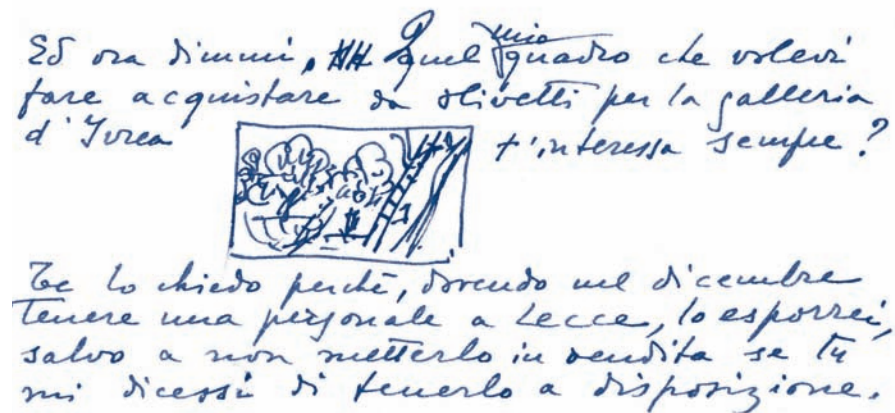 mio
Ed ora dimmi, quel quadro che volevi
fare acquistare da Olivetti per la galleria
d'Ivrea t'interessa sempre?
Te lo chiedo perché, dovendo nel dicembre
tenere una personale a Lecce, lo esporrei,
salvo a non metterlo in vendita se tu
mi dicessi di tenerlo a disposizione.